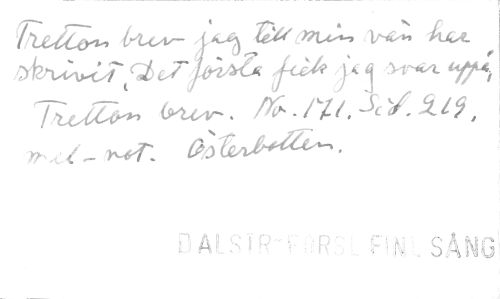 Tretton brev jag till min vän har
skrivit, Det första fick jag svar uppå,
Tretton brev. No. 171. Sid. 219.
mel-not. Österbotten.
DALSTR-FORSL FINL SÅNG